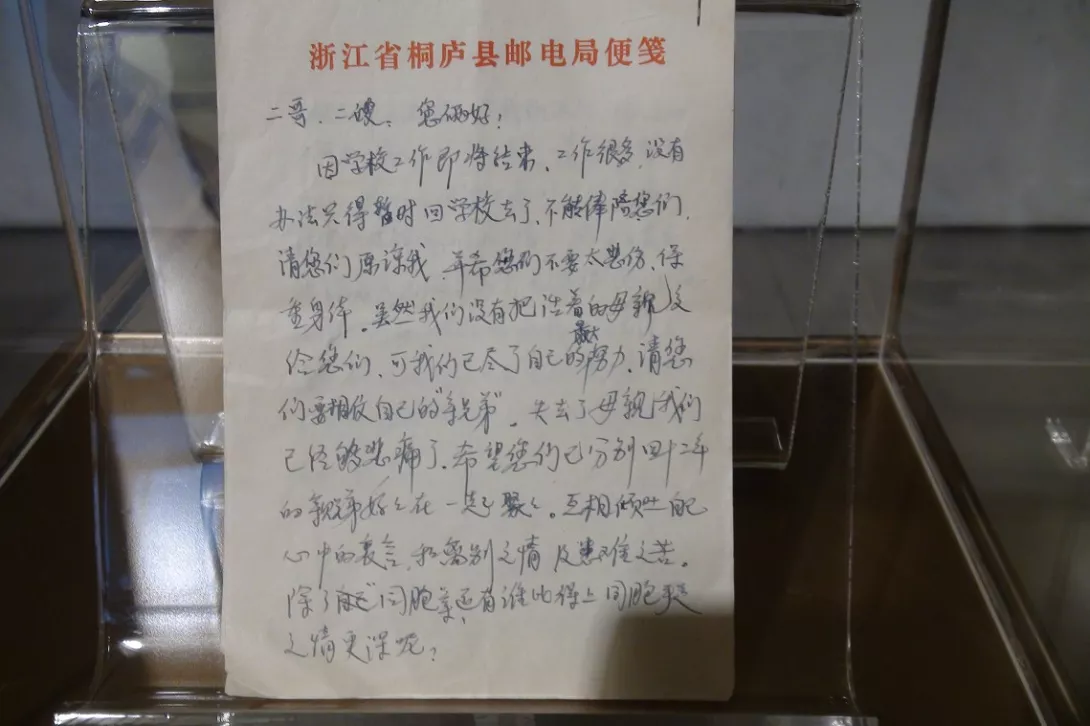 浙江省桐庐县邮电局便笺
二哥.二嫂:您俩好!
因学校工作即将结束、工作很多,没有
办法只得暂时回学校去了,不能俸陪您们.
请您们原谅我,并希您们不要太悲伤,保
重身体。虽然我们没有把活着的母亲交
给您们,可我们已尽了自己最大的努力,请您
们要相信自己的"亲兄弟"。失去了母亲我们
已经够悲痛了,希望您们已分别四十二年
的亲兄弟好好在一起聚聚。互相倾吐自己
心中的衷言,和离别之情及患难之苦。
除了自己同胞 还有谁比得上同胞
之情更深呢?